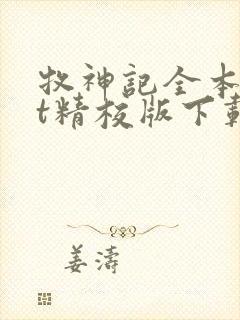 牧神記全本
t精校版下載
姜濤